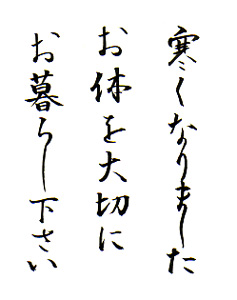 寒くなりました
お体を大切に
お暮らし下さい